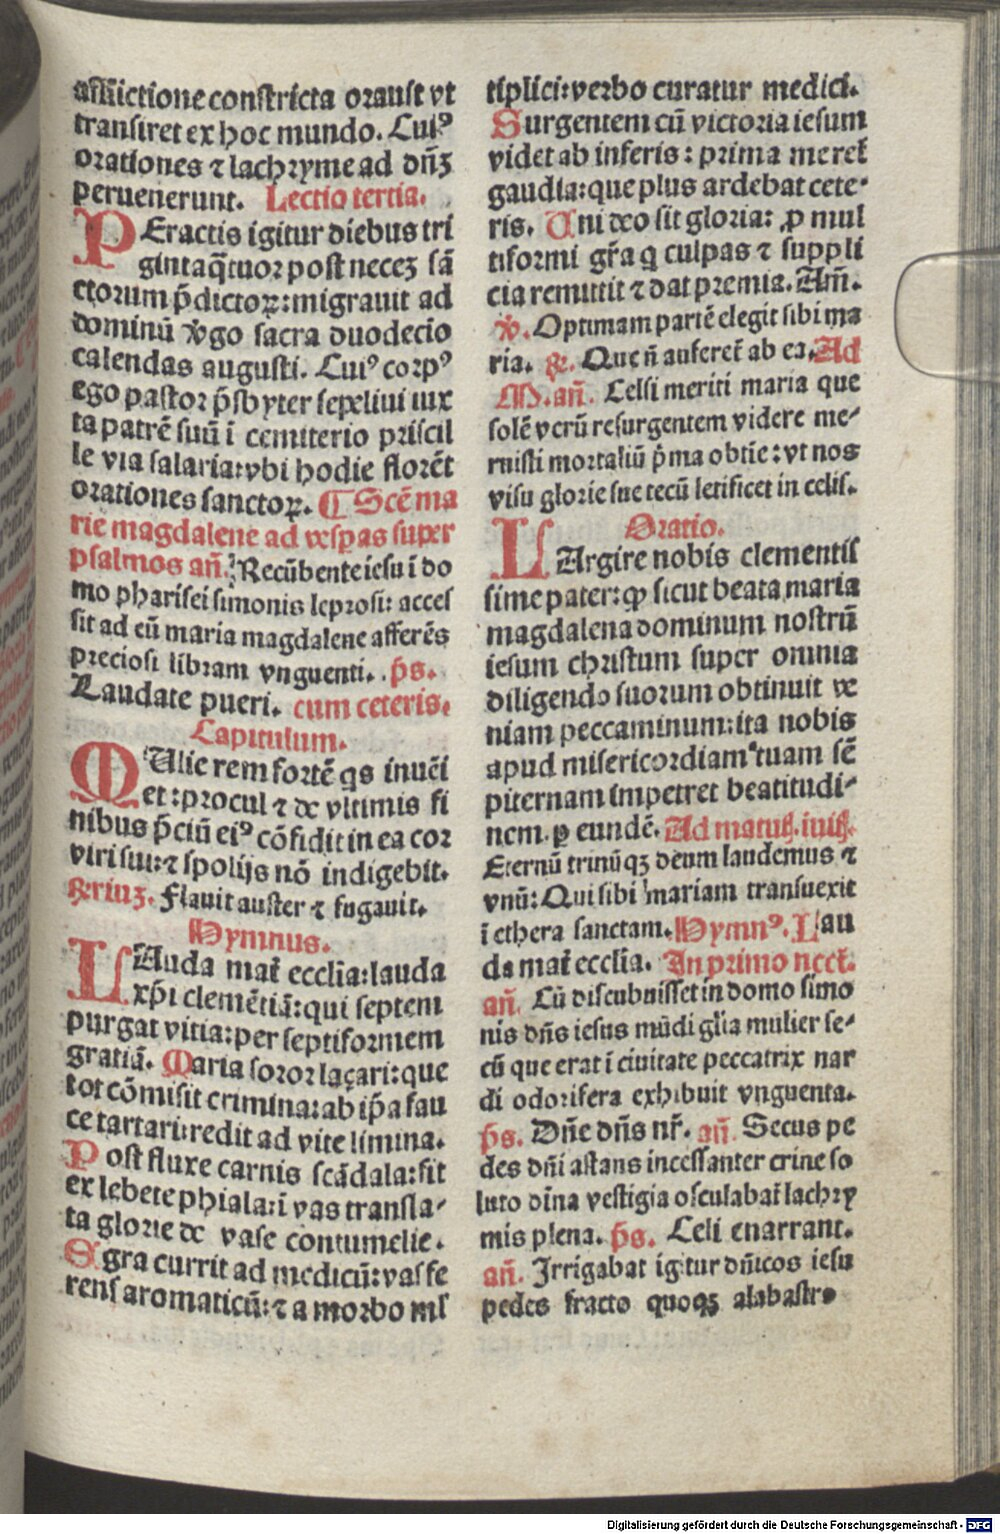 afflictione constricta orauit vt
transiret ex hoc mundo. Cuiꝰ
orationes ⁊ lachryme ad dn̄ꝫ
peruenerunt. Lectio tertia.
PEractis igitur diebus tri
gintaq̄tuor post neceꝫ sā
ctorum p̄dictoꝝ: migrauit ad
dominū v̾go sacra duodecio
calendas augusti. Cuiꝰ corpꝰ
ego pastor p̄sbyter sepeliui iux
ta patrē suū ī cemiterio priscil
le via salaria: vbi hodie florēt
orationes sanctoꝝ. ¶ Scē ma
rie magdalene ad vesꝑas super
psalmos an̄. Recūbente iesu ī do
mo pharisei simonis leprosi: acces
sit ad eū maria magdalene afferēs
preciosi libram vnguenti. p̄s.
Laudate pueri. cum ceteris.
Capitulum.
MUlierem fortē qs inuēi
et: procul ⁊ de vltimis fi
nibus p̄ciū eiꝰ cōfidit in ea cor
viri sui: ⁊ spolijs nō indigebit.
℟riuꝫ. Flauit auster ⁊ fugauit.
Hymnus.
LAuda mat̄ ecclīa: lauda
xp̄i clemētiā: qui septem
purgat vitia: per septiformem
gratiā. Maria soror laçari: que
tot cōmisit crimina: ab ip̄a fau
ce tartari: redit ad vite limina.
Post fluxe carnis scādala: fit
ex lebete phiala: ī vas transla-
ta glorie de vase contumelie.
Egra currit ad medicū: vas fe
rens aromaticū: ⁊ a morbo ml̄
tiplici: verbo curatur medici.
Surgentem cū victoria iesum
videt ab inferis: prima meret̄
gaudia: que plus ardebat cete-
ris. Uni deo sit gloria: ꝓ mul
tiformi gr̄a q culpas ⁊ suppli
cia remittit ⁊ dat premia. Am̄.
℣. Optimam partē elegit sibi ma
ria. ℟. Que n̄ auferet̄ ab ea. Ad
M. an̄. Celsi meriti maria que
solē verū resurgentem videre me-
ruisti mortaliū p̄ma obtīe: vt nos
visu glorie sue tecū letificet in celis.
Oratio.
LArgire nobis clementis
sime pater: ꝙ sicut beata maria
magdalena dominum nostrū
iesum christum super omnia
diligendo suorum obtinuit ve
niam peccaminum: ita nobis
apud misericordiam tuam sē
piternam impetret beatitudi-
nem. ꝑ eundē. Ad matut̄. iuit̄.
Eternū trinūqꝫ deum laudemus ⁊
vnū: Qui sibi mariam transuexit
ī ethera sanctam. Hymnꝰ. Lau
da mat̄ ecclia. In primo noct̄.
an̄. Cū discubuisset in domo simo
nis dn̄s iesus mūdi gl̄ia mulier se-
cū que erat ī ciuitate peccatrix nar
di odorifera exhibuit vnguenta.
p̄s. Dn̄e dn̄s nr̄. an̄. Secus pe
des dn̄i astans incessanter crine so
luto oīna vestigia osculabat̄ lachry
mis plena. p̄s. Celi enarrant.
an̄. Irrigabat igitur dn̄icos iesu
pedes fracto quoqꝫ alabastro
Digitalisierung gefördert durch die Deutsche Forschungsgemeinschaft - DFG